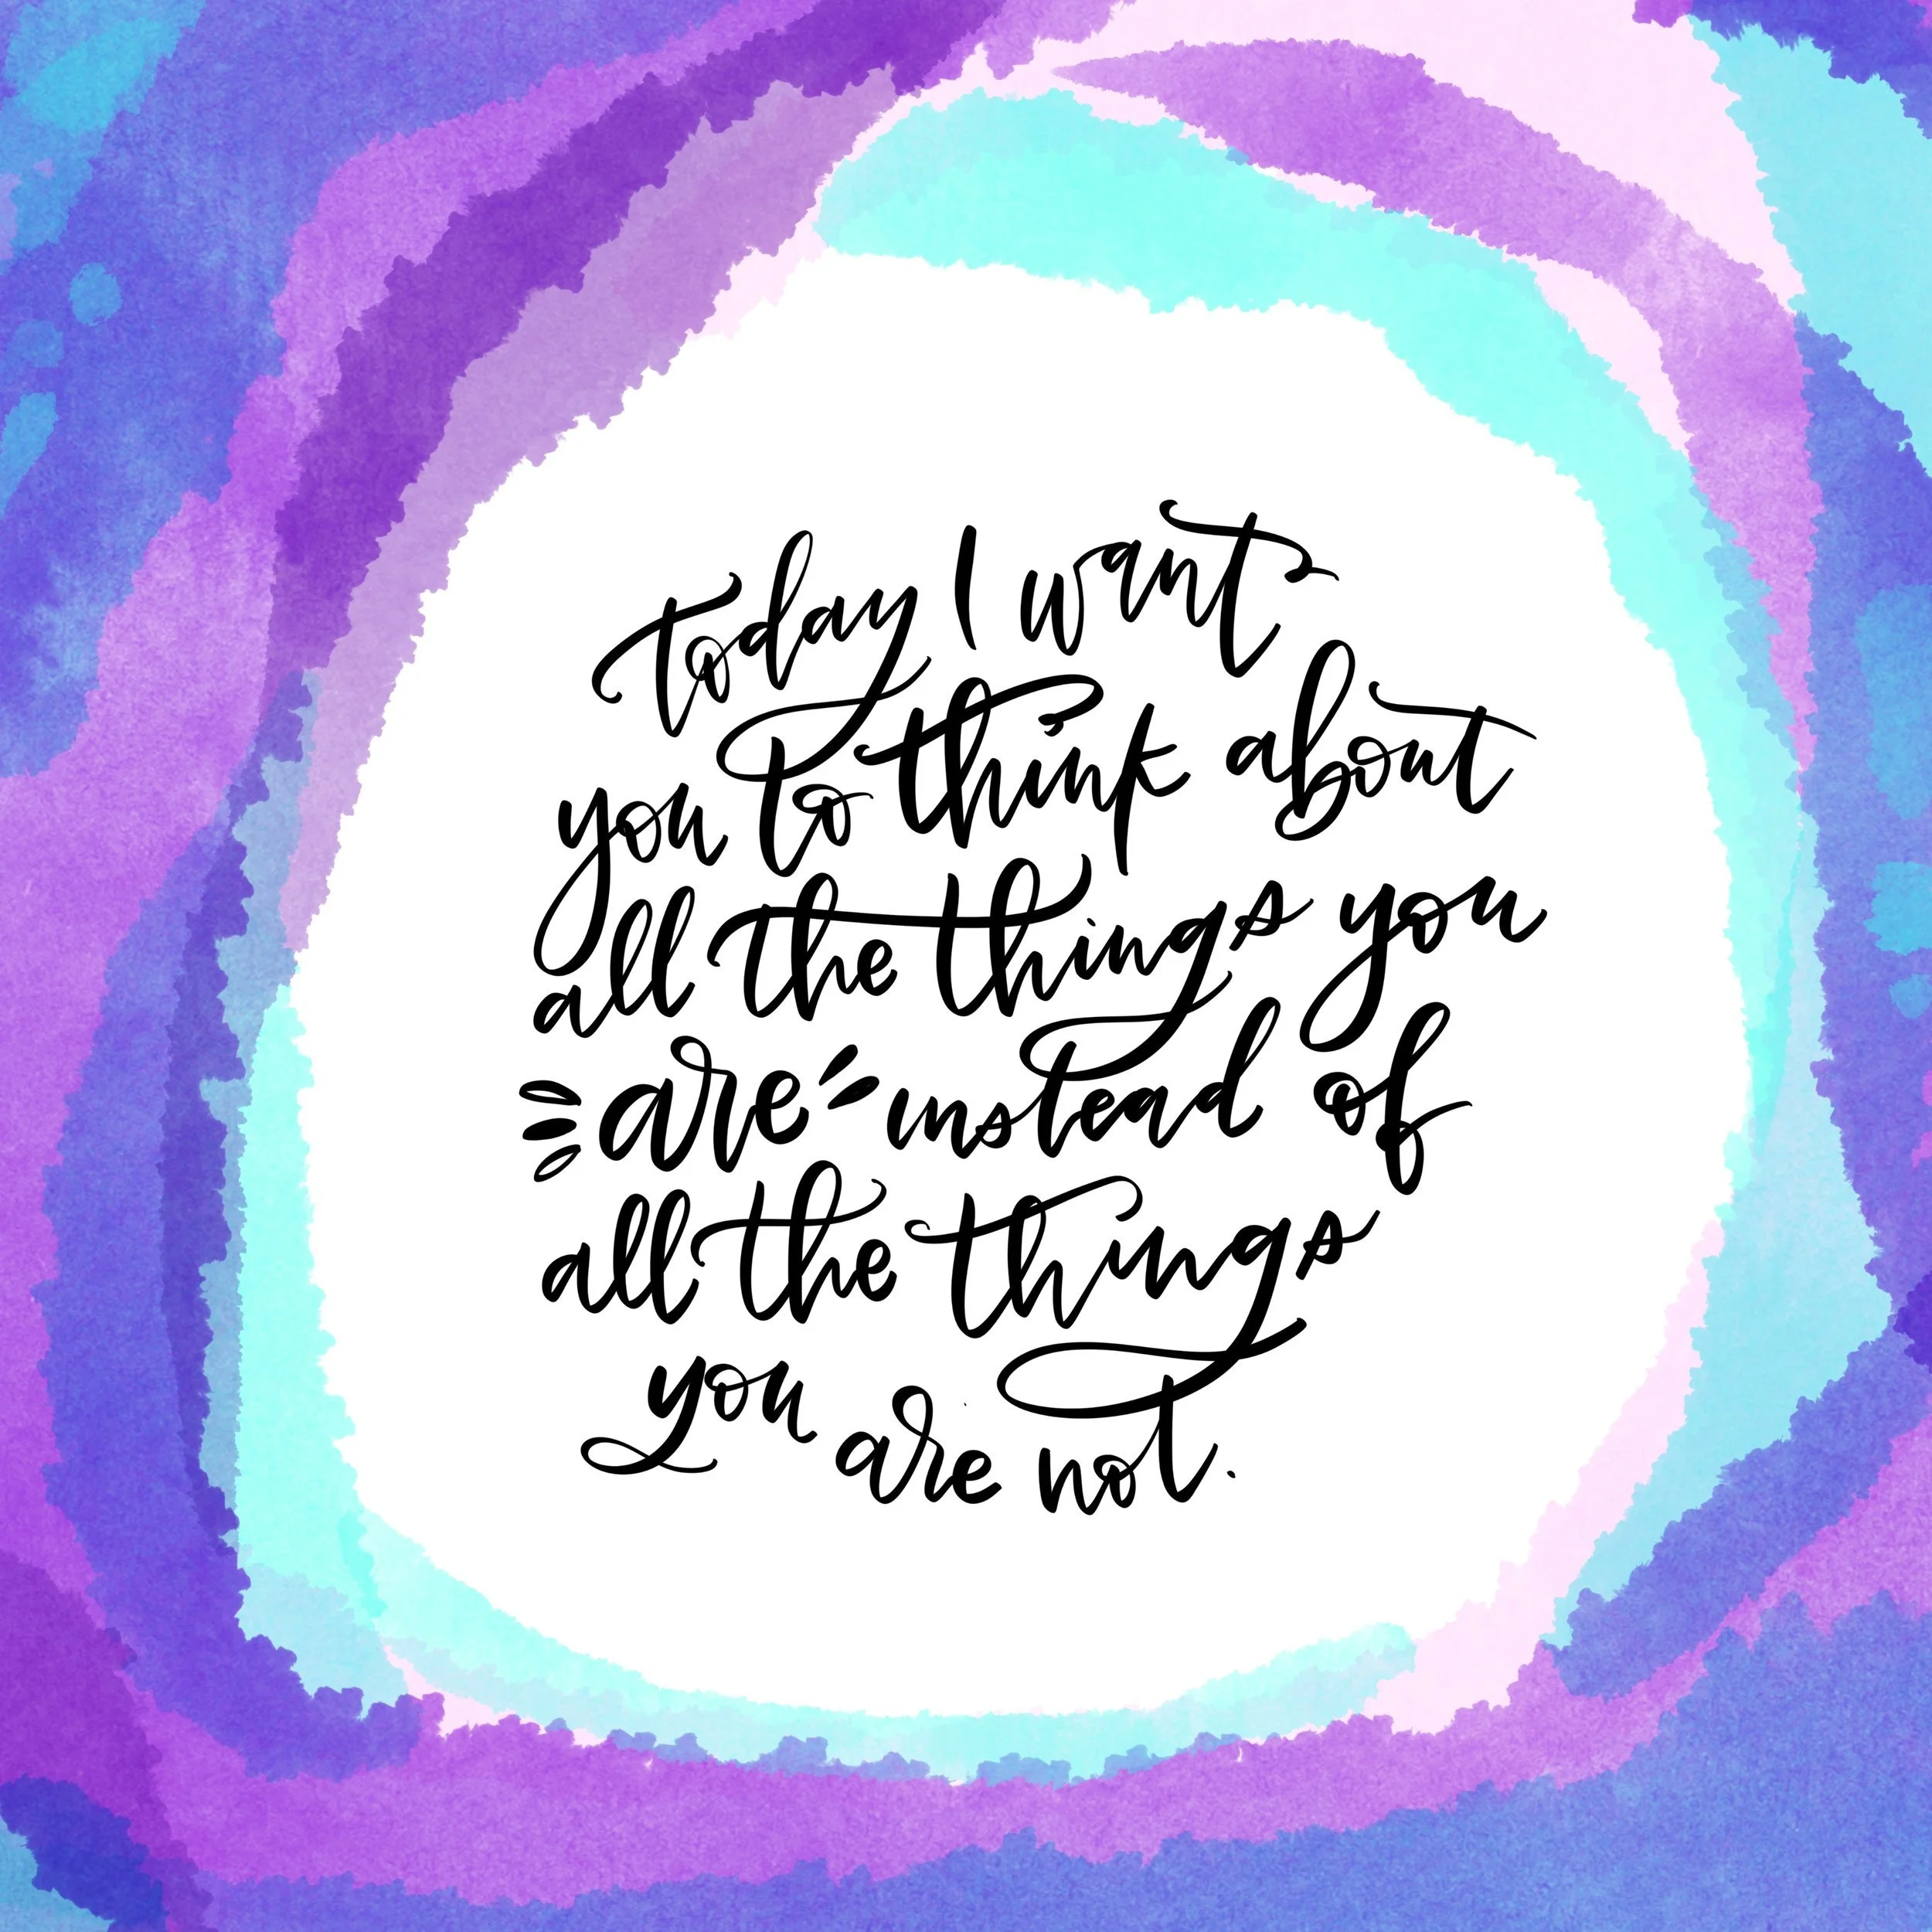 today I want
you to think about
all the things you
are instead of
all the things
you are not.